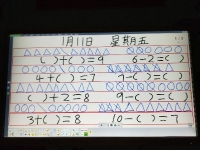 1月11日 星期五
( )+( )=9 6-2=( )
4+( )=7 7-( )=( )
( )+2=8 9-( )=( )
3+( )=8 10-( )=7